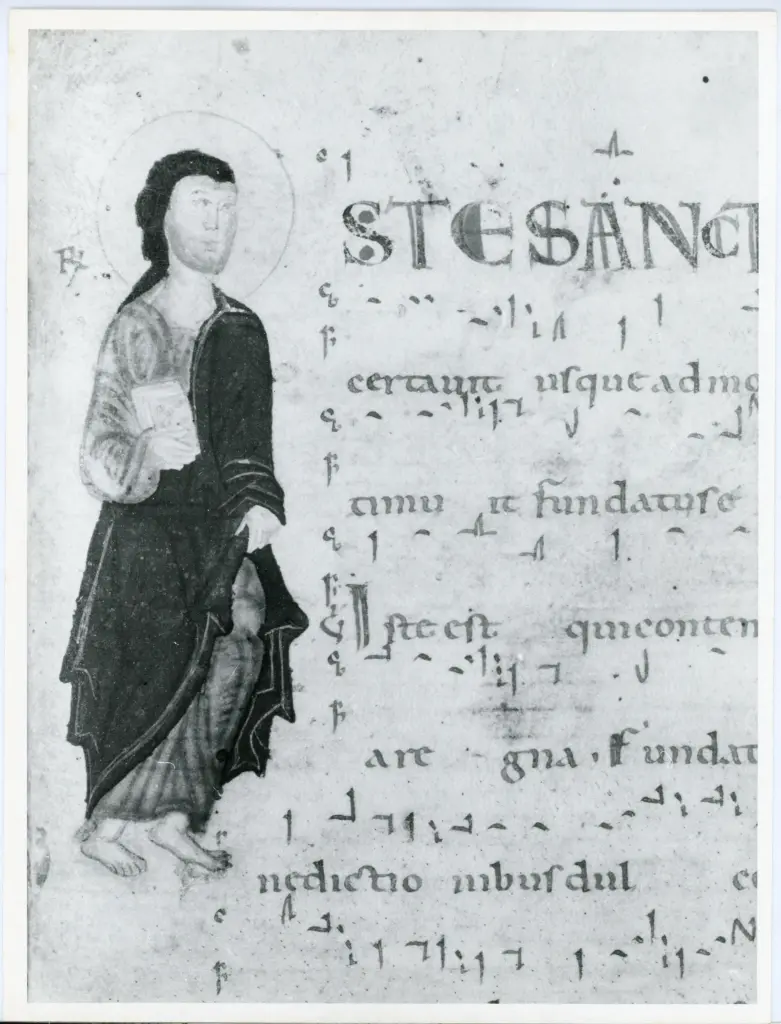 STE SANCT
certauit usque ad mo
timu it fundatus e
Iste est qui conten
a re gna. Fundat
nedictio nibus dul ce